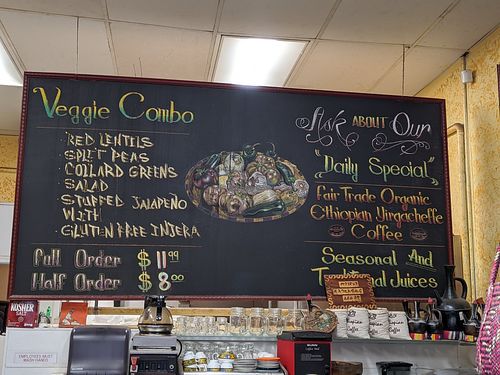 Veggie Combo
· RED LENTILS
· SPLIT PEAS
· COLLARD GREENS
· SALAD
· STUFFED JALAPEÑO
WITH
· GLUTEN FREE INJERA
Full Order $11.99
Half Order $8.00
Ask ABOUT Our
"Daily Special"
Fair Trade Organic
Ethiopian Yirgacheffe
Coffee
Seasonal And
Traditional Juices
KOSHER
SALT
EMPLOYEES MUST
WASH HANDS